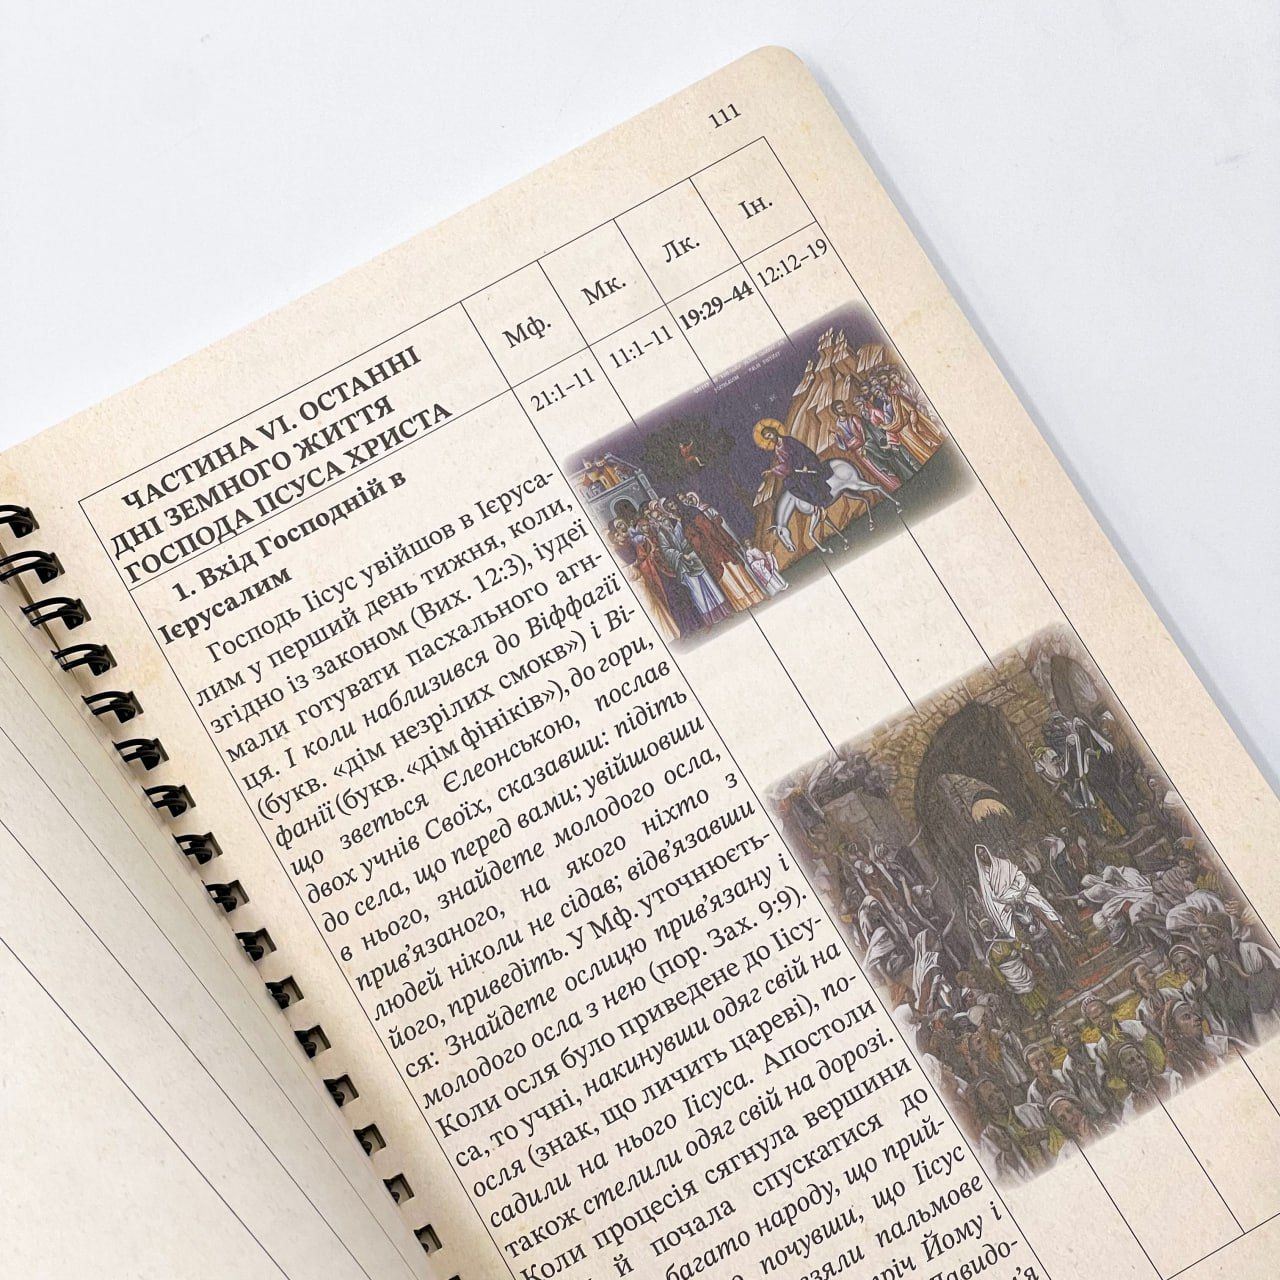 111
Мф.
Мк.
Лк.
Ін.
ЧАСТИНА VI. ОСТАННІ
ДНІ ЗЕМНОГО ЖИТТЯ
ГОСПОДА ІІСУСА ХРИСТА
21:1–11
11:1–11
19:29–44
12:12–19
1. Вхід Господній в
Ієрусалим
Господь Іісус увійшов в Ієруса-
лим у перший день тижня, коли,
згідно із законом (Вих. 12:3), іудеї
мали готувати пасхального агн-
ця. І коли наблизився до Віффагії
(букв. «дім незрілих смокв») і Ві-
фанії (букв. «дім фініків»), до гори,
що зветься Єлеонською, послав
двох учнів Своїх, сказавши: підіть
до села, що перед вами; увійшовши
в нього, знайдете молодого осла,
прив’язаного, на якого ніхто з
людей ніколи не сідав; відв’язавши
його, приведіть. У Мф. уточнюєть-
ся: Знайдете ослицю прив’язану і
молодого осла з нею (пор. Зах. 9:9).
Коли осля було приведене до Іісу-
са, то учні, накинувши одяг свій на
осля (знак, що личить цареві), по-
садили на нього Іісуса. Апостоли
також стелили одяг свій на дорозі.
Коли процесія сягнула вершини
й почала спускатися до
багато народу, що прий-
почувши, що Іісус
взяли пальмове
Йому і
Давидо-